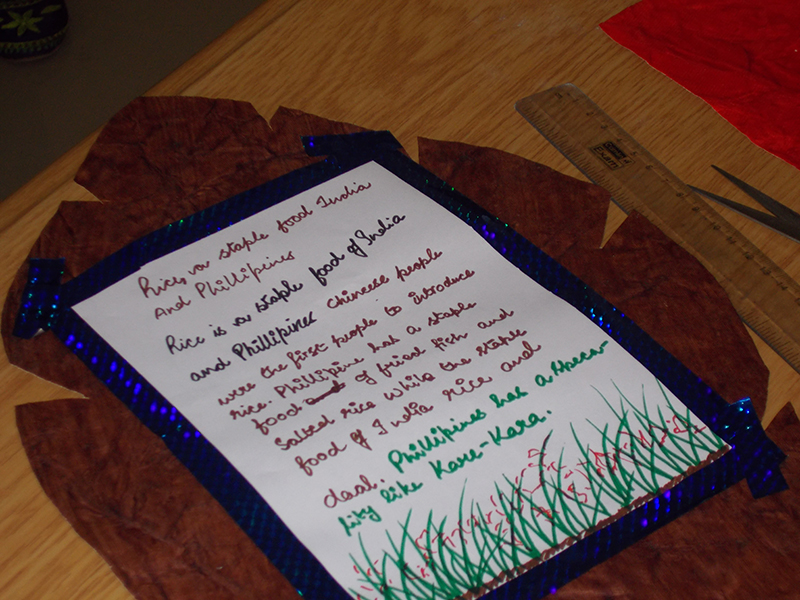 Rice, a staple food India
And Phillipines
Rice is a staple food of India
and Phillipines Chinese people
were the first people to introduce
rice. Phillipine has a staple
food of fried fish and
Salted rice while the staple
food of India rice and
daal. Phillipines has a specia-
lity like Kare-Kara.